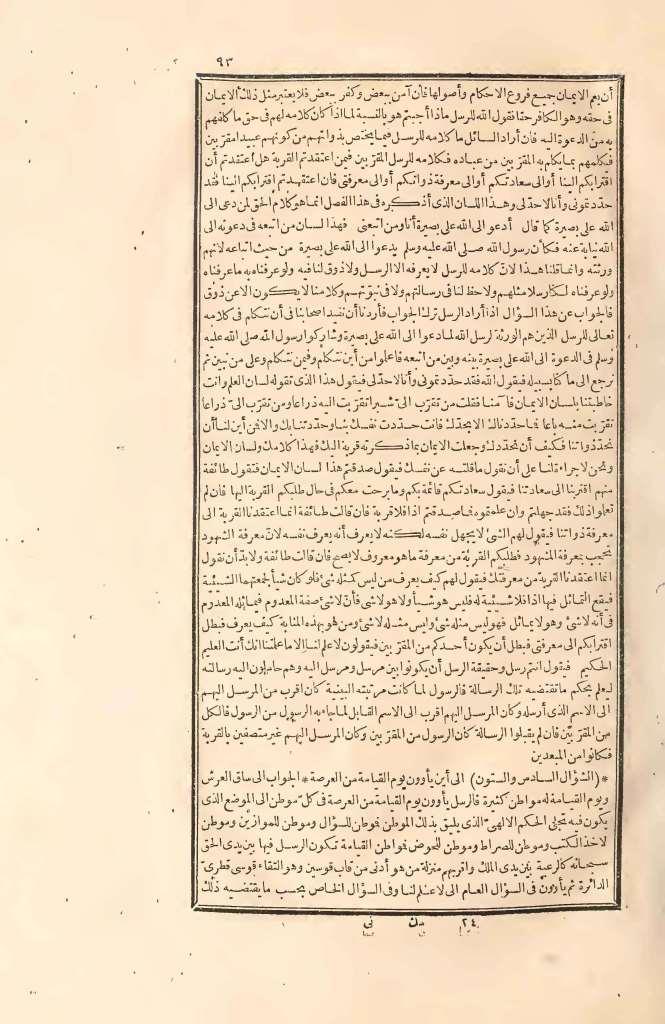 ٩٣
أن يعم الايمان جميع فروع الاحكام وأصولها فان آمن ببعض وكفر ببعض فلا يعتبر مثل ذلك الايمان
فى حقه وهو الكافر حقا فقول الله للرسل ماذا أجبتم هو بالنسبة لما اذا كان كلامه لهم فى حق ما كلفهم
به من الدعوة اليه فان أراد السائل ما كلامه للرسل فيما يختص بذواتهم من كونهم عبيدا مقربين
فكلمهم بما يكلم به المقربين من عباده فكلامه للرسل المقربين فيمن اعتقدتم القربة هل اعتقدتم أن
اقترابكم الينا أو الى سعادتكم أو الى معرفة ذواتكم أو الى معرفتى فان اعتقدتم اقترابكم الينا فقد
حددتمونى وأنا لا حد لى وهذا اللسان الذى أذكره فى هذا الفصل انما هو كلام الحق لمن دعى الى
الله على بصيرة كما قال أدعو الى الله على بصيرة أنا ومن اتبعنى فهذا لسان من اتبعه فى دعوته الى
الله نيابة عنه فكان رسول الله صلى الله عليه وسلم يدعوا الى الله على بصيرة من حيث اتباعه لانهم
ورثته وانما قلنا هذا لانّ كلامه للرسل لا يعرفه الا الرسل ولا ذوق لنا فيه ولو عرفناه به ما عرفناه
ولو عرفناه لكنا رسلا مثلهم ولا حظ لنا فى رسالتهم ولا فى نبوّتهم وكلامنا لا يكون الا عن ذوق
فالجواب عن هذا السؤال اذا أراد الرسل ترك الجواب فأردنا أن نفيد اصحابنا فى أن نتكلم فى كلامه
تعالى للرسل الذين هم الورثة لرسل الله لما دعوا الى الله على بصيرة وشاركوا رسول الله صلى الله عليه
وسلم فى الدعوة الى الله على بصيرة بينه وبين من اتبعه فاعلموا من أين نتكلم وفيمن نتكلم وعلى من نبين ثم
نرجع الى ما كنا بسبيله فيقول الله فقد حددتمونى وأنا لا حد لى فيقول هذا الذى تقوله لسان العلم وأنت
خاطبتنا بلسان الايمان فآمنا فقلت من تقرّب الىّ شبرا تقرّبت اليه ذراعا ومن تقرّب الىّ ذراعا
تقرّبت منه باعا فما حددناك الا بحدّك فانت حددت نفسك بنا وحددتنا بك والا فمن أين لنا أن
نحدّد ذواتنا فكيف أن نحدّدك وجعلت الايمان بما ذكرته قربة اليك فهذا كلامك ولسان الايمان
ونحن لا جراءة لنا على أن نقول ما قلته عن نفسك فيقول صدقتم هذا لسان الايمان فتقول طائفة
منهم اقتربنا الى سعادتنا فيقول سعادتكم قائمة بكم وما برحت معكم فى حال طلبكم القربة اليها فان لم
تعلموا ذلك فقد جهلتم وان علمتموه فما صدقتم اذا فلا قربة فان قالت طائفة انما اعتقدنا القربة الى
معرفة ذواتنا فيقول لهم الشئ لا يجهل نفسه لكنه لا يعرف أنه يعرف نفسه لانّ معرفة الشهود
تحجب بمعرفة المشهود فطلبكم القربة من معرفة ما هو معروف لا يصح فان قالت طائفة ولا بدّ أن نقول
انما اعتقدنا القربة من معرفتك فيقول لهم كيف يعرف من ليس كمثله شئ فلو كان شيأ لجمعتهما الشيئية
فيقع التماثل فيها اذا فلا شيئية له فليس هو شيأ ولا هو لا شئ فانّ لا شئ صفة المعدوم فيماثله المعدوم
فى أنه لا شئ وهو لا يماثل فهو ليس مثله شئ وليس مثله لا شئ ومن هو بهذه المثابة كيف يعرف فبطل
اقترابكم الى معرفتى فبطل أن يكون أحدكم من المقرّبين فيقولون لا علم لنا الا ما علمتنا انك أنت العليم
الحكيم فيقول انتم رسل وحقيقة الرسل أن يكونوا بين مرسل ومرسل اليه وهم حاملون اليه رسالته
ليعلم بحكم ما تقتضيه تلك الرسالة فالرسول لما كانت مرتبته البينية كان اقرب من المرسل اليهم
الى الاسم الذى أرسله وكان المرسل اليهم اقرب الى الاسم القابل لما جاء به الرسول من الرسول فالكل
من المقرّبين فان لم يقبلوا الرسالة كان الرسول من المقرّبين وكان المرسل اليهم غير متصفين بالقربة
فكانوا من المبعدين
* (السؤال السادس والستون) الى أين يأوون يوم القيامة من العرصة * الجواب الى ساق العرش
ويوم القيامة له مواطن كثيرة فالرسل يأوون يوم القيامة من العرصة فى كلّ موطن الى الموضع الذى
يكون فيه تجلى الحكم الالهىّ الذى يليق بذلك الموطن فموطن للسؤال وموطن للموازين وموطن
لاخذ الكتب وموطن للصراط وموطن للحوض فمواطن القيامة تكون الرسل فيها بين يدى الحق
سبحانه كالرعية بين يدى الملك واقربهم منزلة من هو أدنى من قاب قوسين وهو التقاء قوسى قطرىّ
الدائرة ثم يأوون فى السؤال العام الى لا علم لنا وفى السؤال الخاص بحسب ما يقتضيه ذلك
٢٤ مك نى